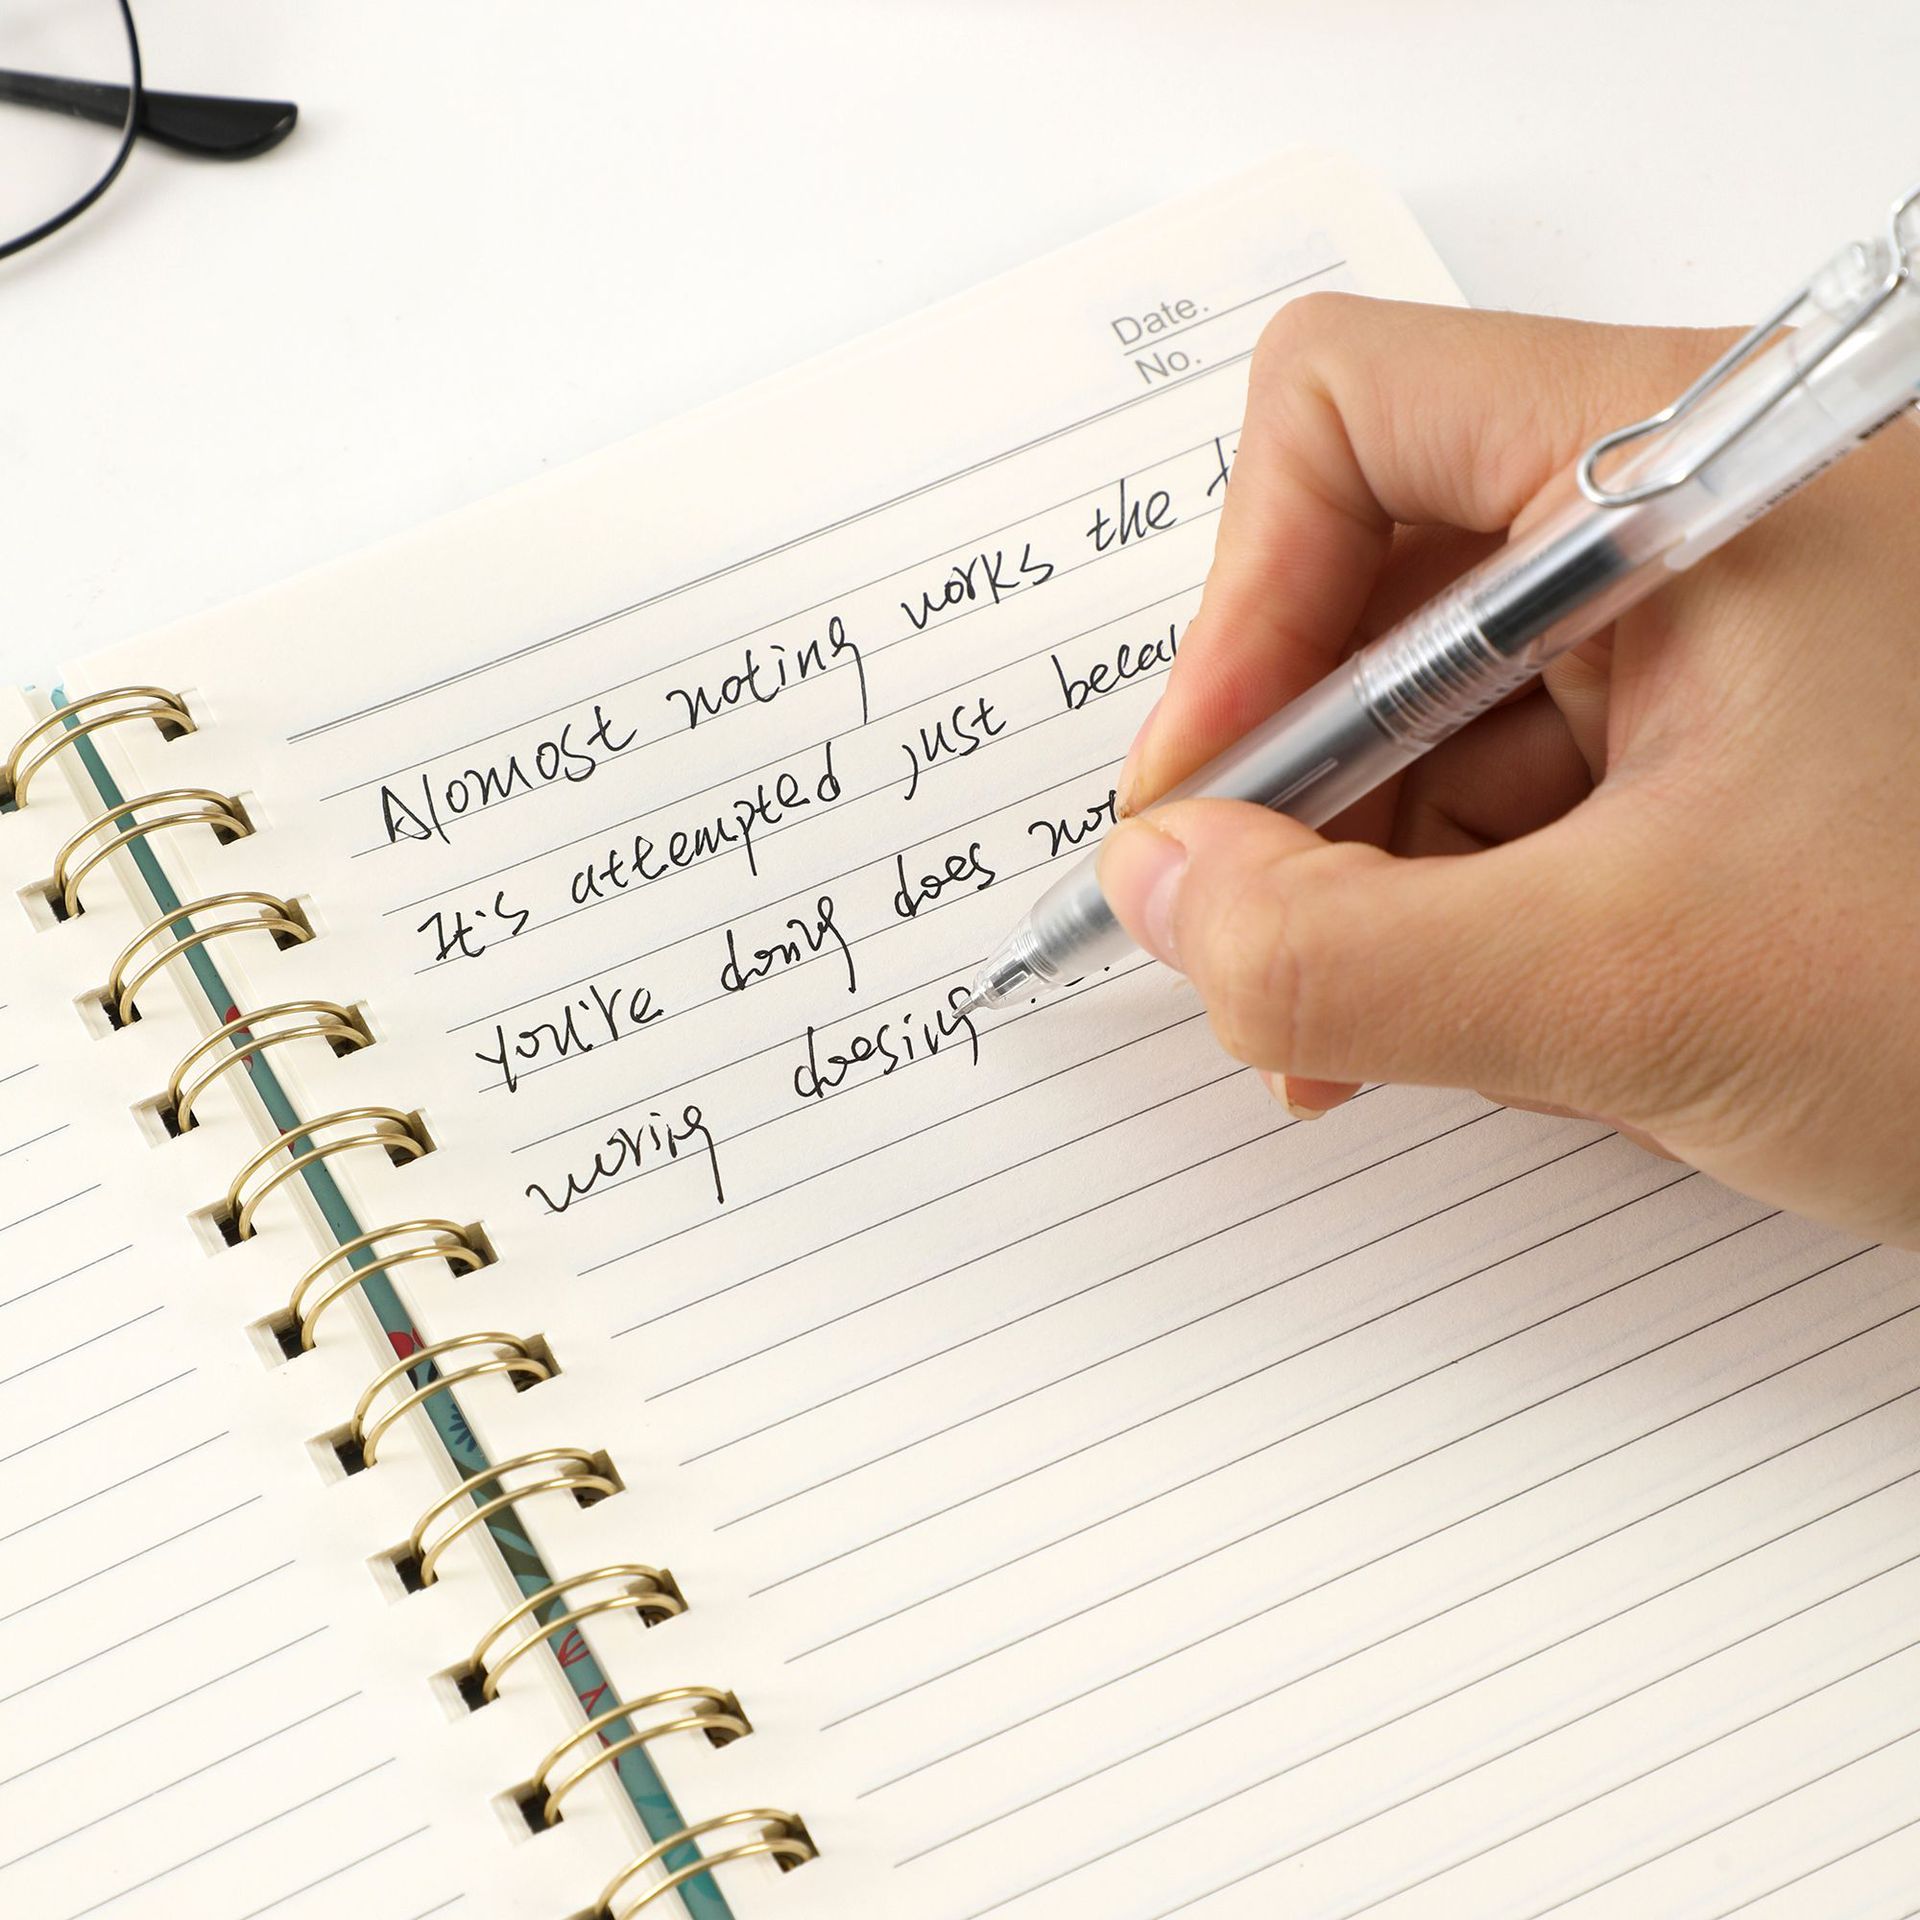 Date.
No.
Alomost noting works the
It's attempted just
you're doing does
doesing